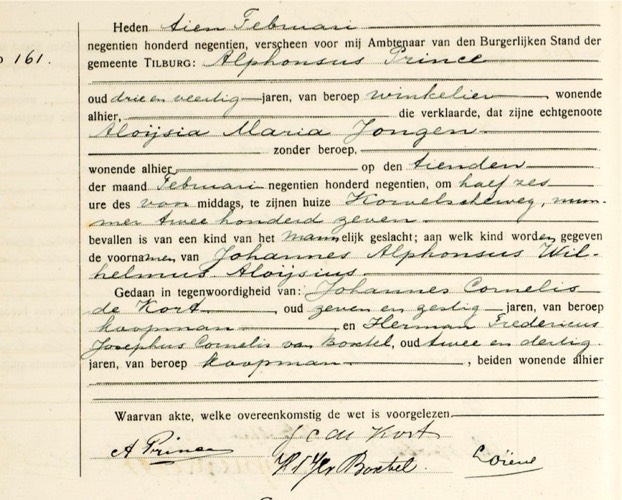 Heden tien Februari
negentien honderd negentien, verscheen voor mij Ambtenaar van den Burgerlijken Stand der
161.
gemeente TILBURG: Alphonsus Prince
oud drie en veertig jaren, van beroep winkelier, wonende
alhier, die verklaarde, dat zijne echtgenoote
Aloijsia Maria Jongen
zonder beroep,
wonende alhier, op den tienden
der maand Februari negentien honderd negentien, om half zes
ure des voormiddags, te zijnen huize Korvelscheweg, num-
mer twee honderd zeven
bevallen is van een kind van het mannelijk geslacht; aan welk kind worden gegeven
de voornamen van Johannes Alphonsus Wil-
helmus Aloijsius.
Gedaan in tegenwoordigheid van: Johannes Cornelis
de Kort, oud zeven en zestig jaren, van beroep
koopman, en Herman Fredericus
Josephus Cornelis van Boxtel, oud twee en dertig
jaren, van beroep koopman, beiden wonende alhier
Waarvan akte, welke overeenkomstig de wet is voorgelezen.
A Prince J C de Kort
Boxtel.